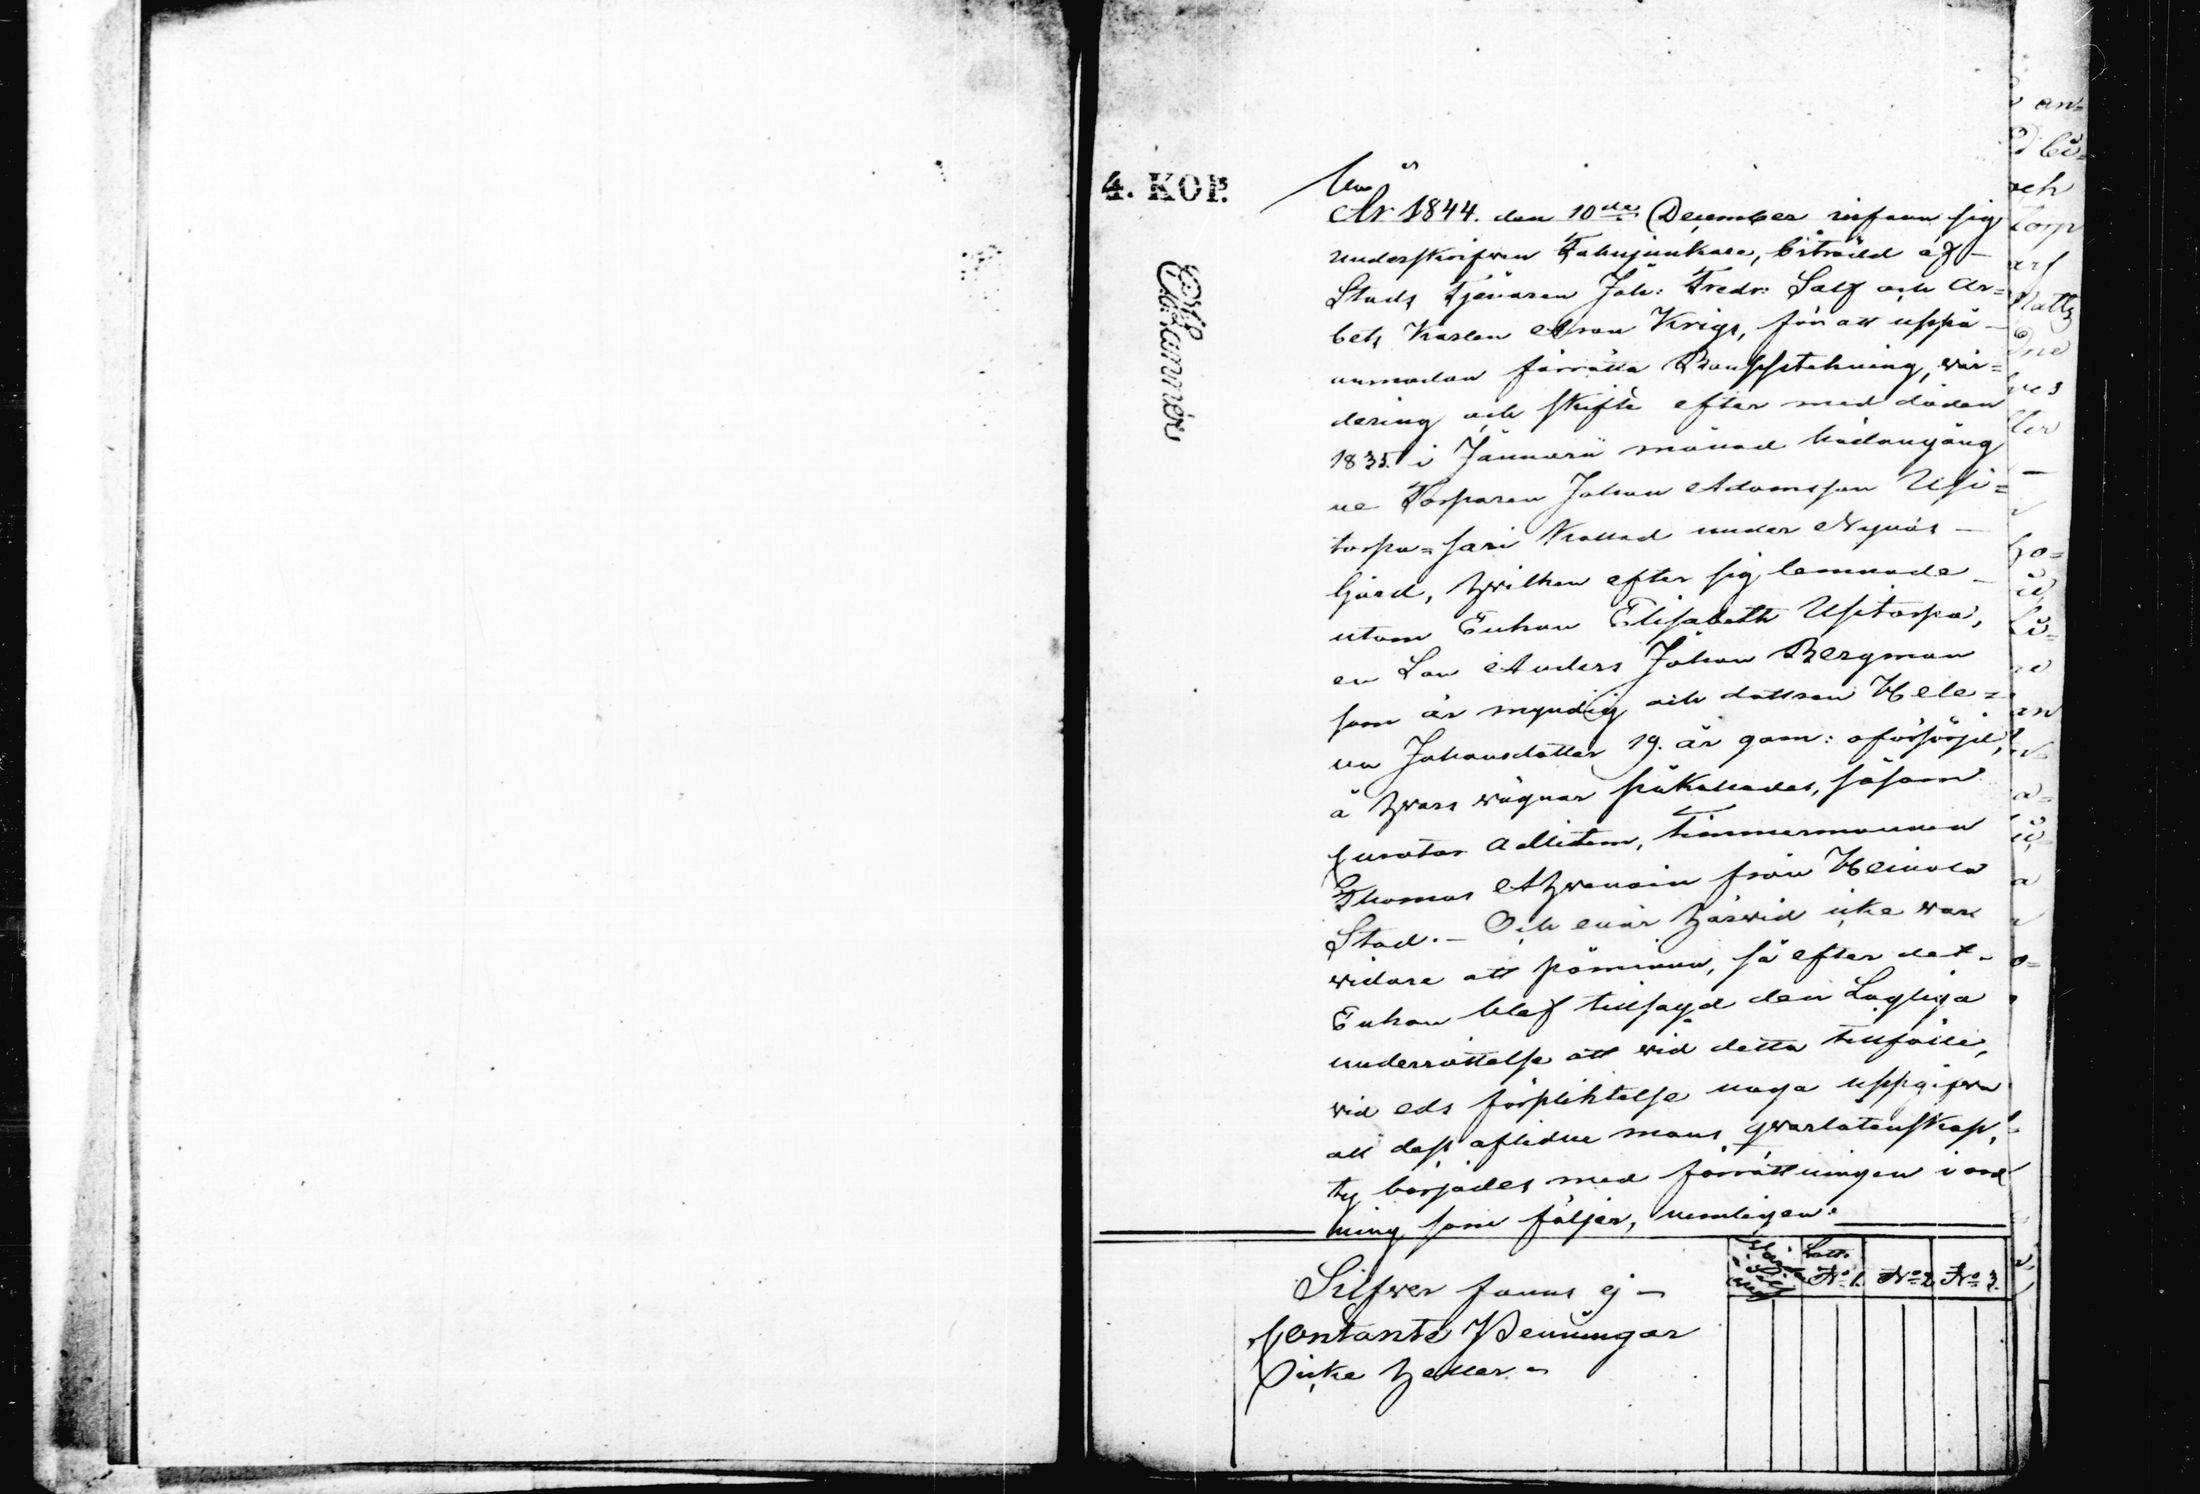 4. KOP.
År 1844. den 10de December infann sig
underskrifven Fahnjunkare, biträdd af
Stads Tjenaren Joh: Fredr: Salf och Ar=
bets Karlen Aron Krigs, för att uppå
anmodan förrätta Bouppstekning, vär=
dering och skifte efter med döden
1835. i Januarii månad hädangång
ne Torparen Johan Adamsson Usi=
torpa=sari kallad under Nynäs
Gård, hvilken efter sig lemnade
utom Enkan Elisabeth Usitorpa,
en Son Anders Johan Bergman
som är myndig och dottren Hele=
na Johansdotter 19. år gam: oförsörjd,
å hvars vägnar påkallades, såsom
Curator Adlitem, Timmermannen
Thomas Ahvenain från Heinola
Stad. – Och enär härvid icke var
vidare att påminna, så efter det
Enkan blef tillsagd den Lagliga
underrättelse att vid detta tillfälle,
vid eds förpliktelse noga uppgifva
all dess aflidne mans qvarlåtenskap,
ty börjades med förrättningen i ord
ning som följer, nemligen:
Lott.
No 1. No 2 No 3.
Silfver fanns ej –
Contante Penningar
icke heller –